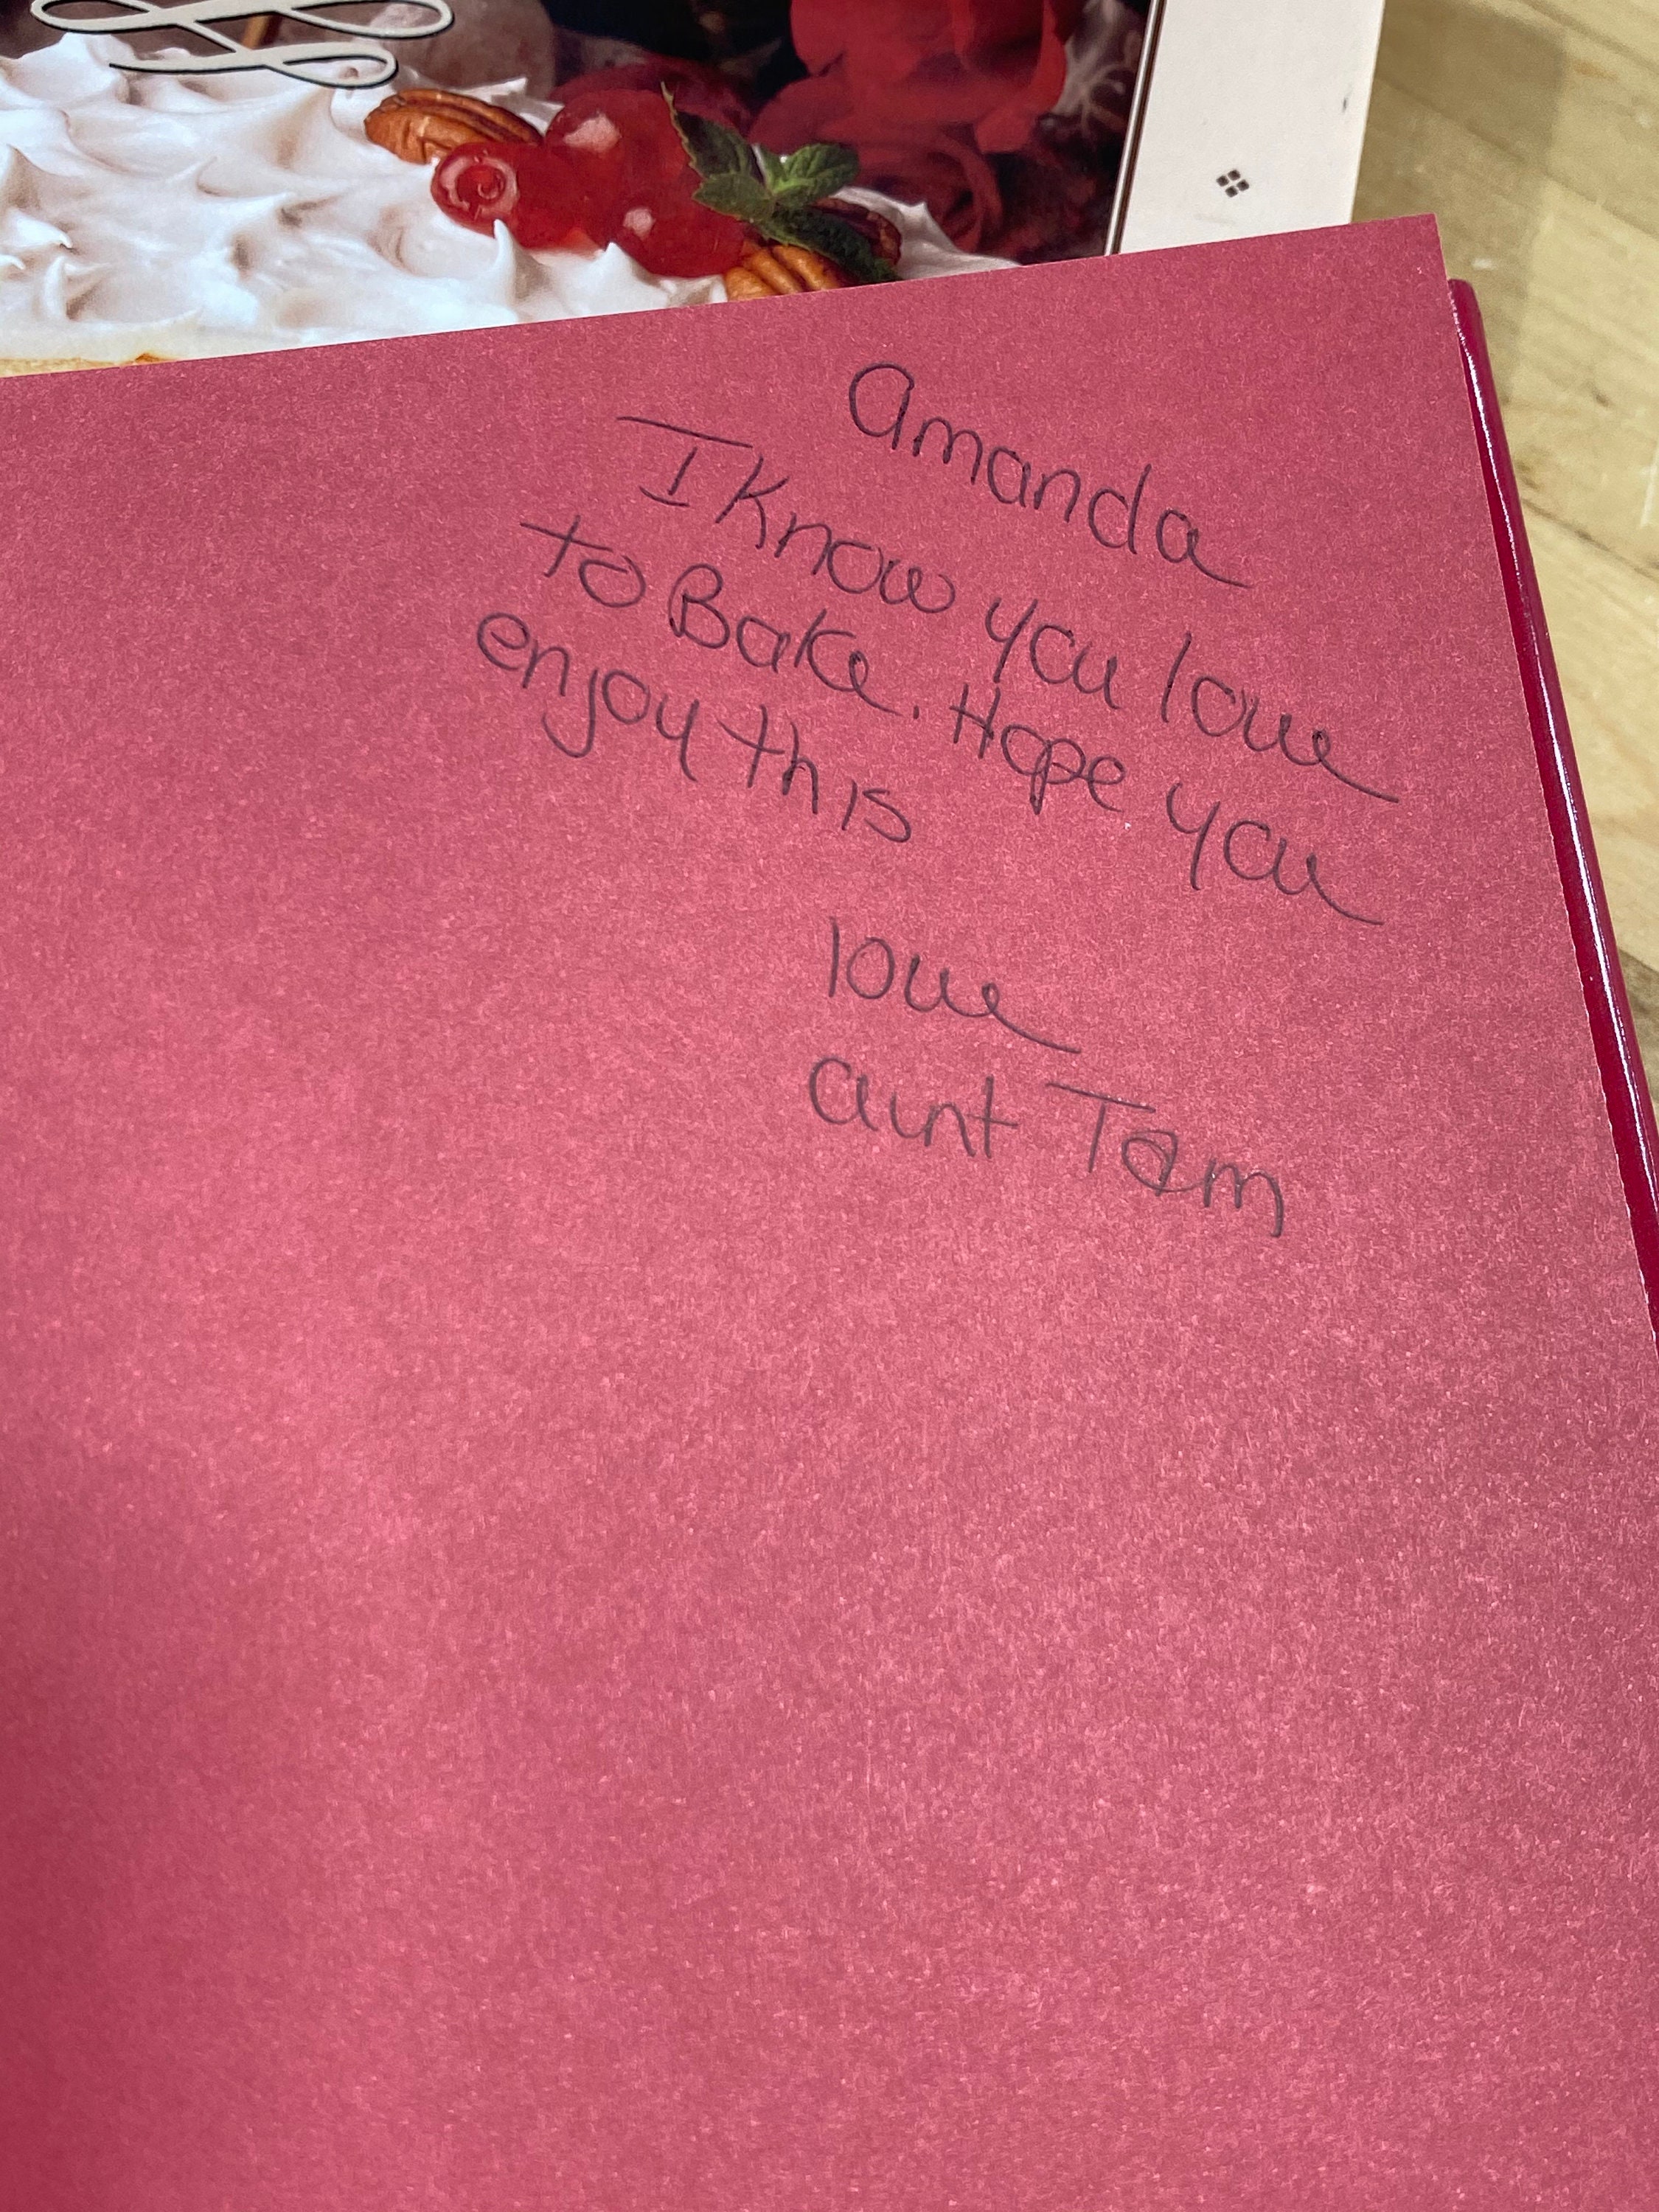 Amanda
I Know you love
to Bake. Hope you
enjoy this
love
aunt Tam